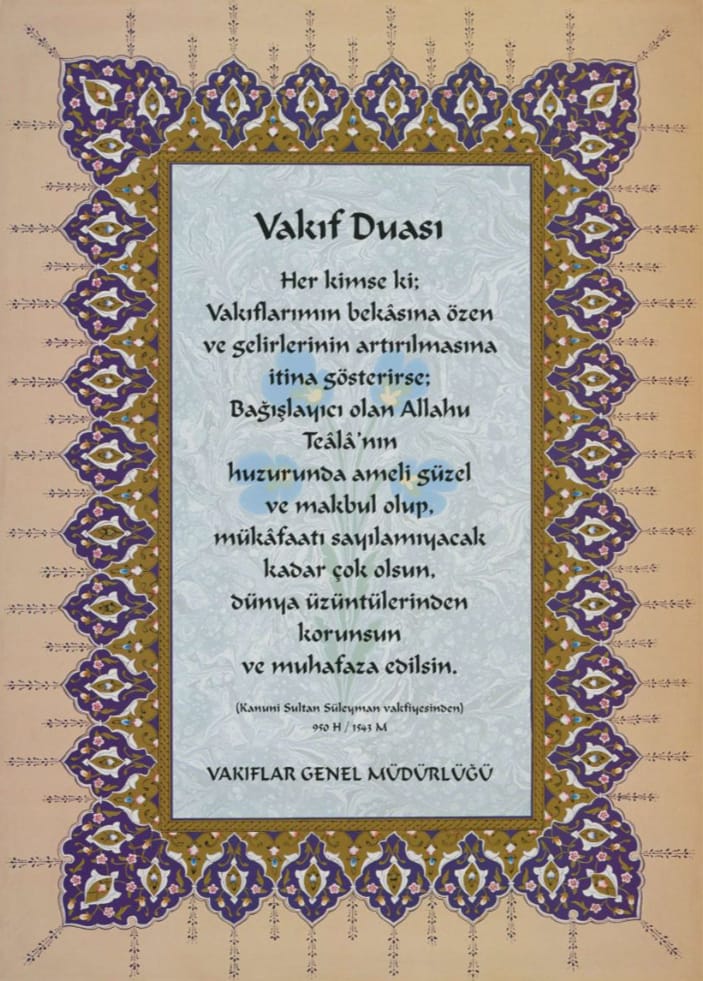 Vakıf Duası
Her kimse ki;
Vakıflarımın bekâsına özen
ve gelirlerinin artırılmasına
itina gösterirse;
Bağışlayıcı olan Allahu
Teâlâ'nın
huzurunda ameli güzel
ve makbul olup,
mükâfaatı sayılamıyacak
kadar çok olsun,
dünya üzüntülerinden
korunsun
ve muhafaza edilsin.
(Kanuni Sultan Süleyman vakfiyesinden)
950 H / 1543 M
VAKIFLAR GENEL MÜDÜRLÜĞÜ